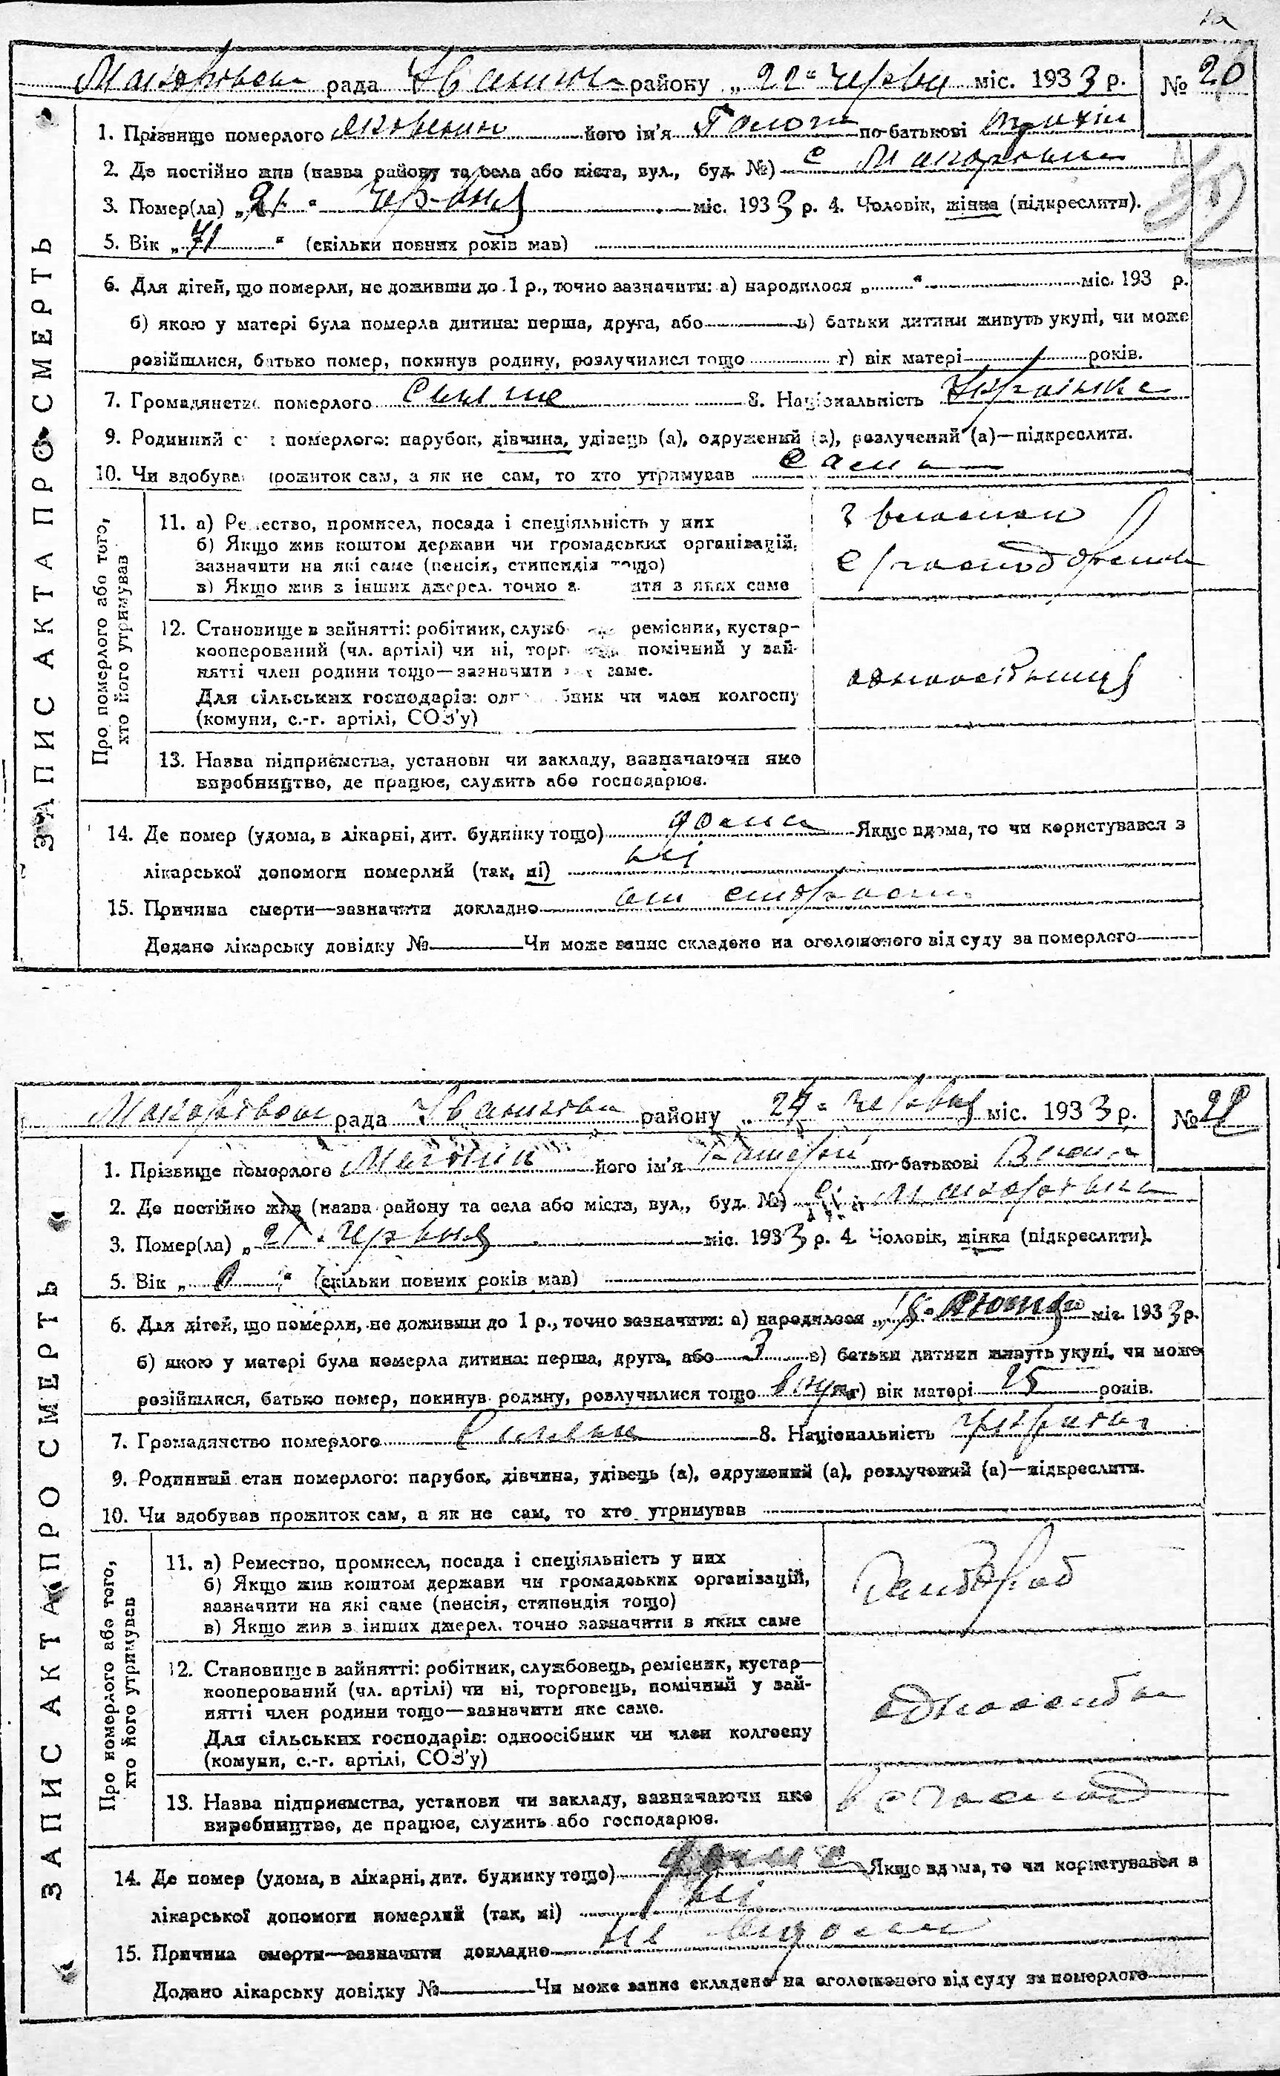 рада району „22“ червня міс. 1933 р. № 26
1. Прізвище померлого його ім'я по-батькові
2. Де постійно жив (назва району та села або міста, вул., буд. №) с
3. Помер(ла) „21“ червня міс. 1933 р. 4. Чоловік, жінка (підкреслити).
5. Вік „71“ (скільки повних років мав)
6. Для дітей, що померли, не доживши до 1 р., точно зазначити: а) народилося „ “ міс. 193 р.
б) якою у матері була померла дитина: перша, друга, або в) батьки дитини живуть укупі, чи може
розійшлися, батько помер, покинув родину, розлучилися тощо г) вік матері років.
7. Громадянство померлого 8. Національність Українка
9. Родинний с померлого: парубок, дівчина, удівець (а), одружений (а), розлучений (а)—підкреслити.
10. Чи здобував прожиток сам, а як не сам, то хто утримував сама
ЗАПИС АКТА ПРО СМЕРТЬ
Про померлого або того, хто його утримував
11. а) Ремество, промисел, посада і спеціяльність у них
б) Якщо жив коштом держави чи громадських організацій,
зазначити на які саме (пенсія, стипендія тощо)
в) Якщо жив з інших джерел, точно з яких саме
12. Становище в зайнятті: робітник, служб ремісник, кустар-
кооперований (чл. артілі) чи ні, торг помічний у зай-
нятті член родини тощо—зазначити яке саме.
Для сільських господарів: одноосібник чи член колгоспу
(комуни, с.-г. артілі, СОЗ'у)
одноосібниця
13. Назва підприємства, установи чи закладу, зазначаючи яке
виробництво, де працює, служить або господарює.
14. Де помер (удома, в лікарні, дит. будинку тощо) дома Якщо вдома, то чи користувався з
лікарської допомоги померлий (так, ні) ні
15. Причина смерти—зазначити докладно от старости
Додано лікарську довідку № Чи може запис складено на оголошеного від суду за померлого
рада району „24“ червня міс. 1933 р. №
1. Прізвище померлого його ім'я по-батькові
2. Де постійно жив (назва району та села або міста, вул., буд. №) с.
3. Помер(ла) „21“ червня міс. 1933 р. 4. Чоловік, жінка (підкреслити).
5. Вік „0“ (скільки повних років мав)
6. Для дітей, що померли, не доживши до 1 р., точно зазначити: а) народилося лютого міс. 1933 р.
б) якою у матері була померла дитина: перша, друга, або 3 в) батьки дитини живуть укупі, чи може
розійшлися, батько помер, покинув родину, розлучилися тощо г) вік матері 25 років.
7. Громадянство померлого 8. Національність
9. Родинний стан померлого: парубок, дівчина, удівець (а), одружений (а), розлучений (а)—підкреслити.
10. Чи здобував прожиток сам, а як не сам, то хто утримував
ЗАПИС АКТА ПРО СМЕРТЬ
Про померлого або того, хто його утримував
11. а) Ремество, промисел, посада і спеціяльність у них
б) Якщо жив коштом держави чи громадських організацій,
зазначити на які саме (пенсія, стипендія тощо)
в) Якщо жив з інших джерел, точно зазначити з яких саме
12. Становище в зайнятті: робітник, службовець, ремісник, кустар—
кооперований (чл. артілі) чи ні, торговець, помічний у зай-
нятті член родини тощо—зазначити яке саме.
Для сільських господарів: одноосібник чи член колгоспу
(комуни, с.-г. артілі, СОЗ'у)
13. Назва підприємства, установи чи закладу, зазначаючи яке
виробництво, де працює, служить або господарює.
14. Де помер (удома, в лікарні, дит. будинку тощо) дома Якщо вдома, то чи користувався з
лікарської допомоги померлий (так, ні) ні
15. Причина смерти—зазначити докладно не відома
Додано лікарську довідку № Чи може запис складено на оголошеного від суду за померлого